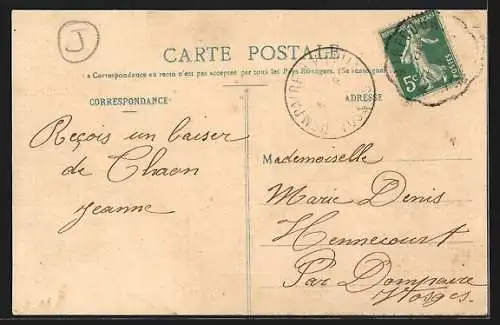 J
CARTE POSTALE
a Correspondance au recto n'est pas acceptée par tous les Pays Étrangers. (Se renseigner
CORRESPONDANCE
ADRESSE
5c
POSTES
Reçois un baiser
de Chaon
Jeanne
Mademoiselle
Marie Denis
Hennecourt
Par Dompaire
Vosges